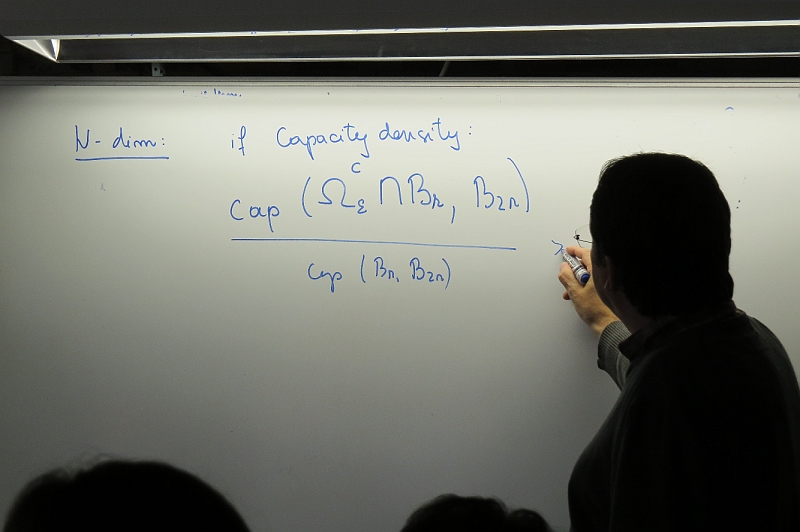 N-dim: if Capacity density:
cap (Ω_ε^c ∩ B_r, B_2r) >
cap (B_r, B_2r)